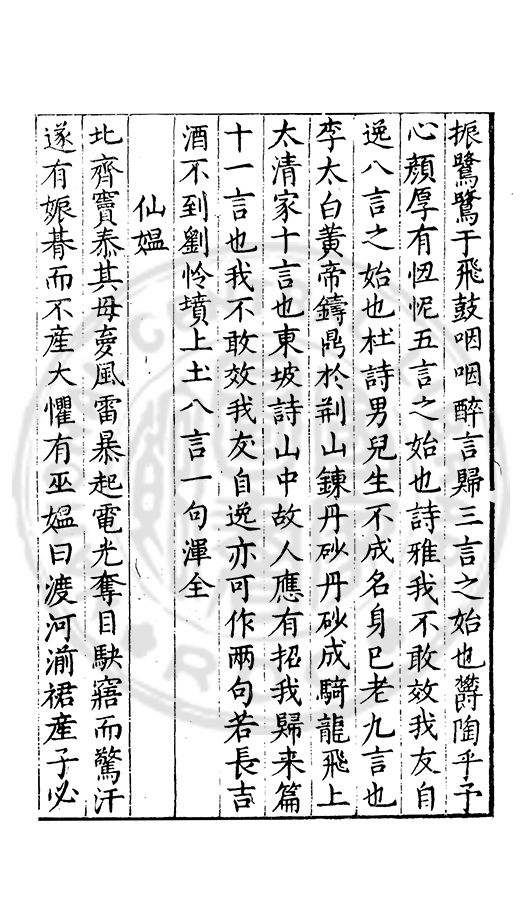 振鷺鷺于飛鼓咽咽醉言歸三言之始也欝陶乎予
心顔厚有忸怩五言之始也詩雅我不敢效我友自
逸八言之始也杜詩男兒生不成名身已老九言也
李太白黃帝鑄鼎於荆山鍊丹砂丹砂成騎龍飛上
太清家十言也東坡詩山中故人應有招我歸来篇
十一言也我不敢效我友自逸亦可作兩句若長吉
酒不到劉怜墳上土八言一句渾全
仙媪
北齊竇泰其母夣風雷暴起電光奪目駃寤而驚汗
遂有娠朞而不産大懼有巫媪曰渡河湔裙産子必